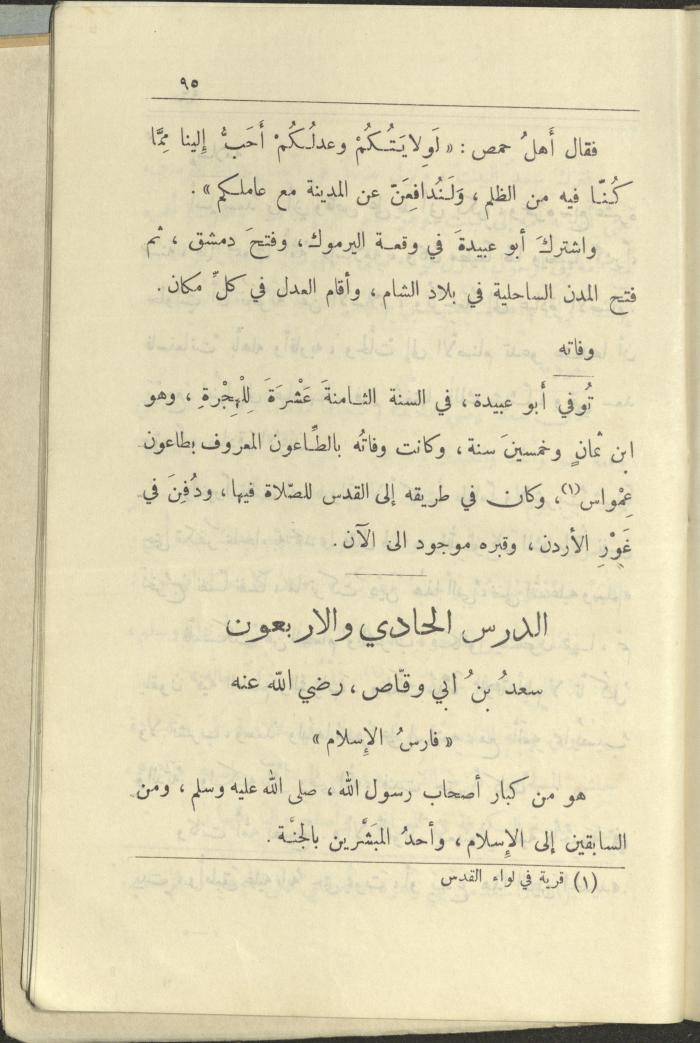 ٩٥
فقال أَهلُ حمص : « لَوِلايَتُكُمْ وعدلُكُمْ أَحَبُّ إِلينا مِمَّا
كُنّا فيه من الظلم ، وَلَنُدافِعَنّ عن المدينة مع عاملكم » .
واشتركَ أبو عبيدةَ في وقعة اليرموك ، وفتحَ دمشق ، ثم
فتح المدن الساحلية في بلاد الشام ، وأقام العدل في كلِّ مكان .
وفاته
تُوفي أَبو عبيدة ، في السنة الثامنةَ عَشْرَةَ لِلْهِجْرةِ ، وهو
ابن ثمانٍ وخمسينَ سنة ، وكانت وفاتُه بالطّاعون المعروف بطاعون
عِمْواس (١) ، وكان في طريقه إلى القدس للصّلاة فيها ، ودُفِنَ في
غَوْرِ الأردن ، وقبره موجود الى الآن .
الدرس الحادي والاربعون
سعدُ بنُ ابي وقّاص ، رضي الله عنه
« فارسُ الإِسلام »
هو من كبار أصحاب رسول الله ، صلى الله عليه وسلم ، ومن
السابقين إلى الإِسلام ، وأحدُ المبَشَّرين بالجنَّة .
(١) قرية في لواء القدس